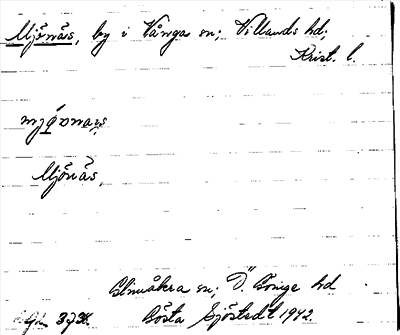 Mjönäs, by i Vånga sn; Villands hd;
Krist. l.
Mjönäs,
Glimåkra sn; Ö. Göinge hd
Gösta Sjöstedt 1942.